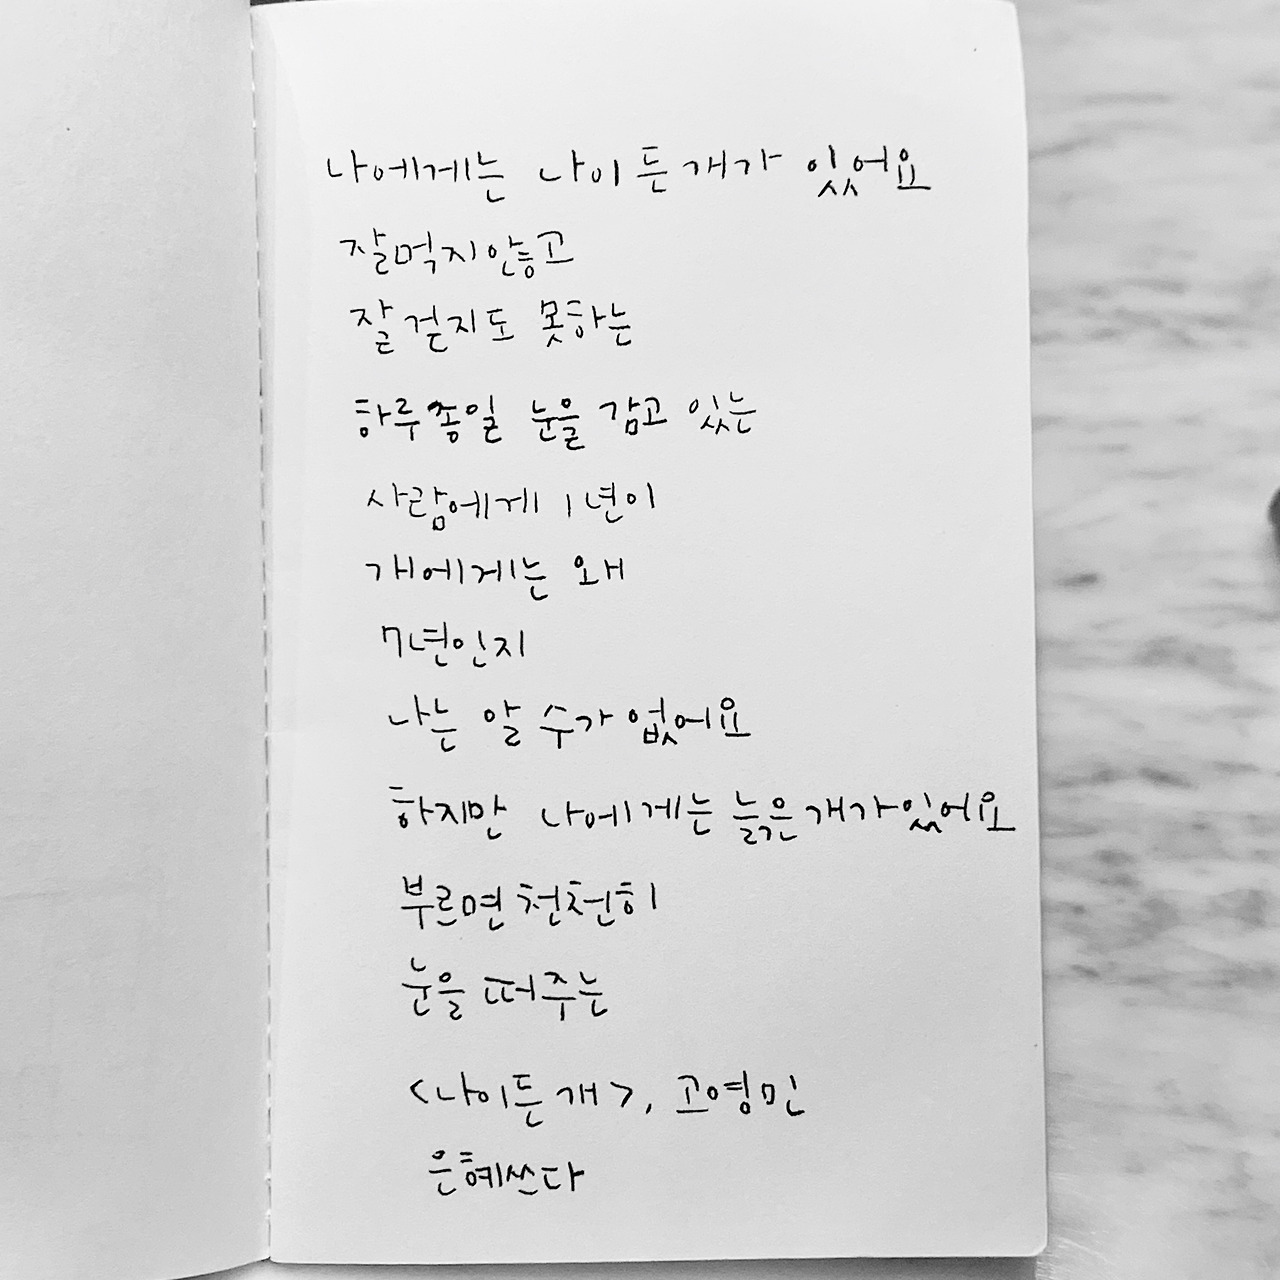 나에게는 나이 든 개가 있어요
잘 먹지 않고
잘 걷지도 못하는
하루종일 눈을 감고 있는
사람에게 1년이
개에게는 왜
7년인지
나는 알 수가 없어요
하지만 나에게는 늙은 개가 있어요
부르면 천천히
눈을 떠주는
<나이 든 개>, 고영민
은혜쓰다